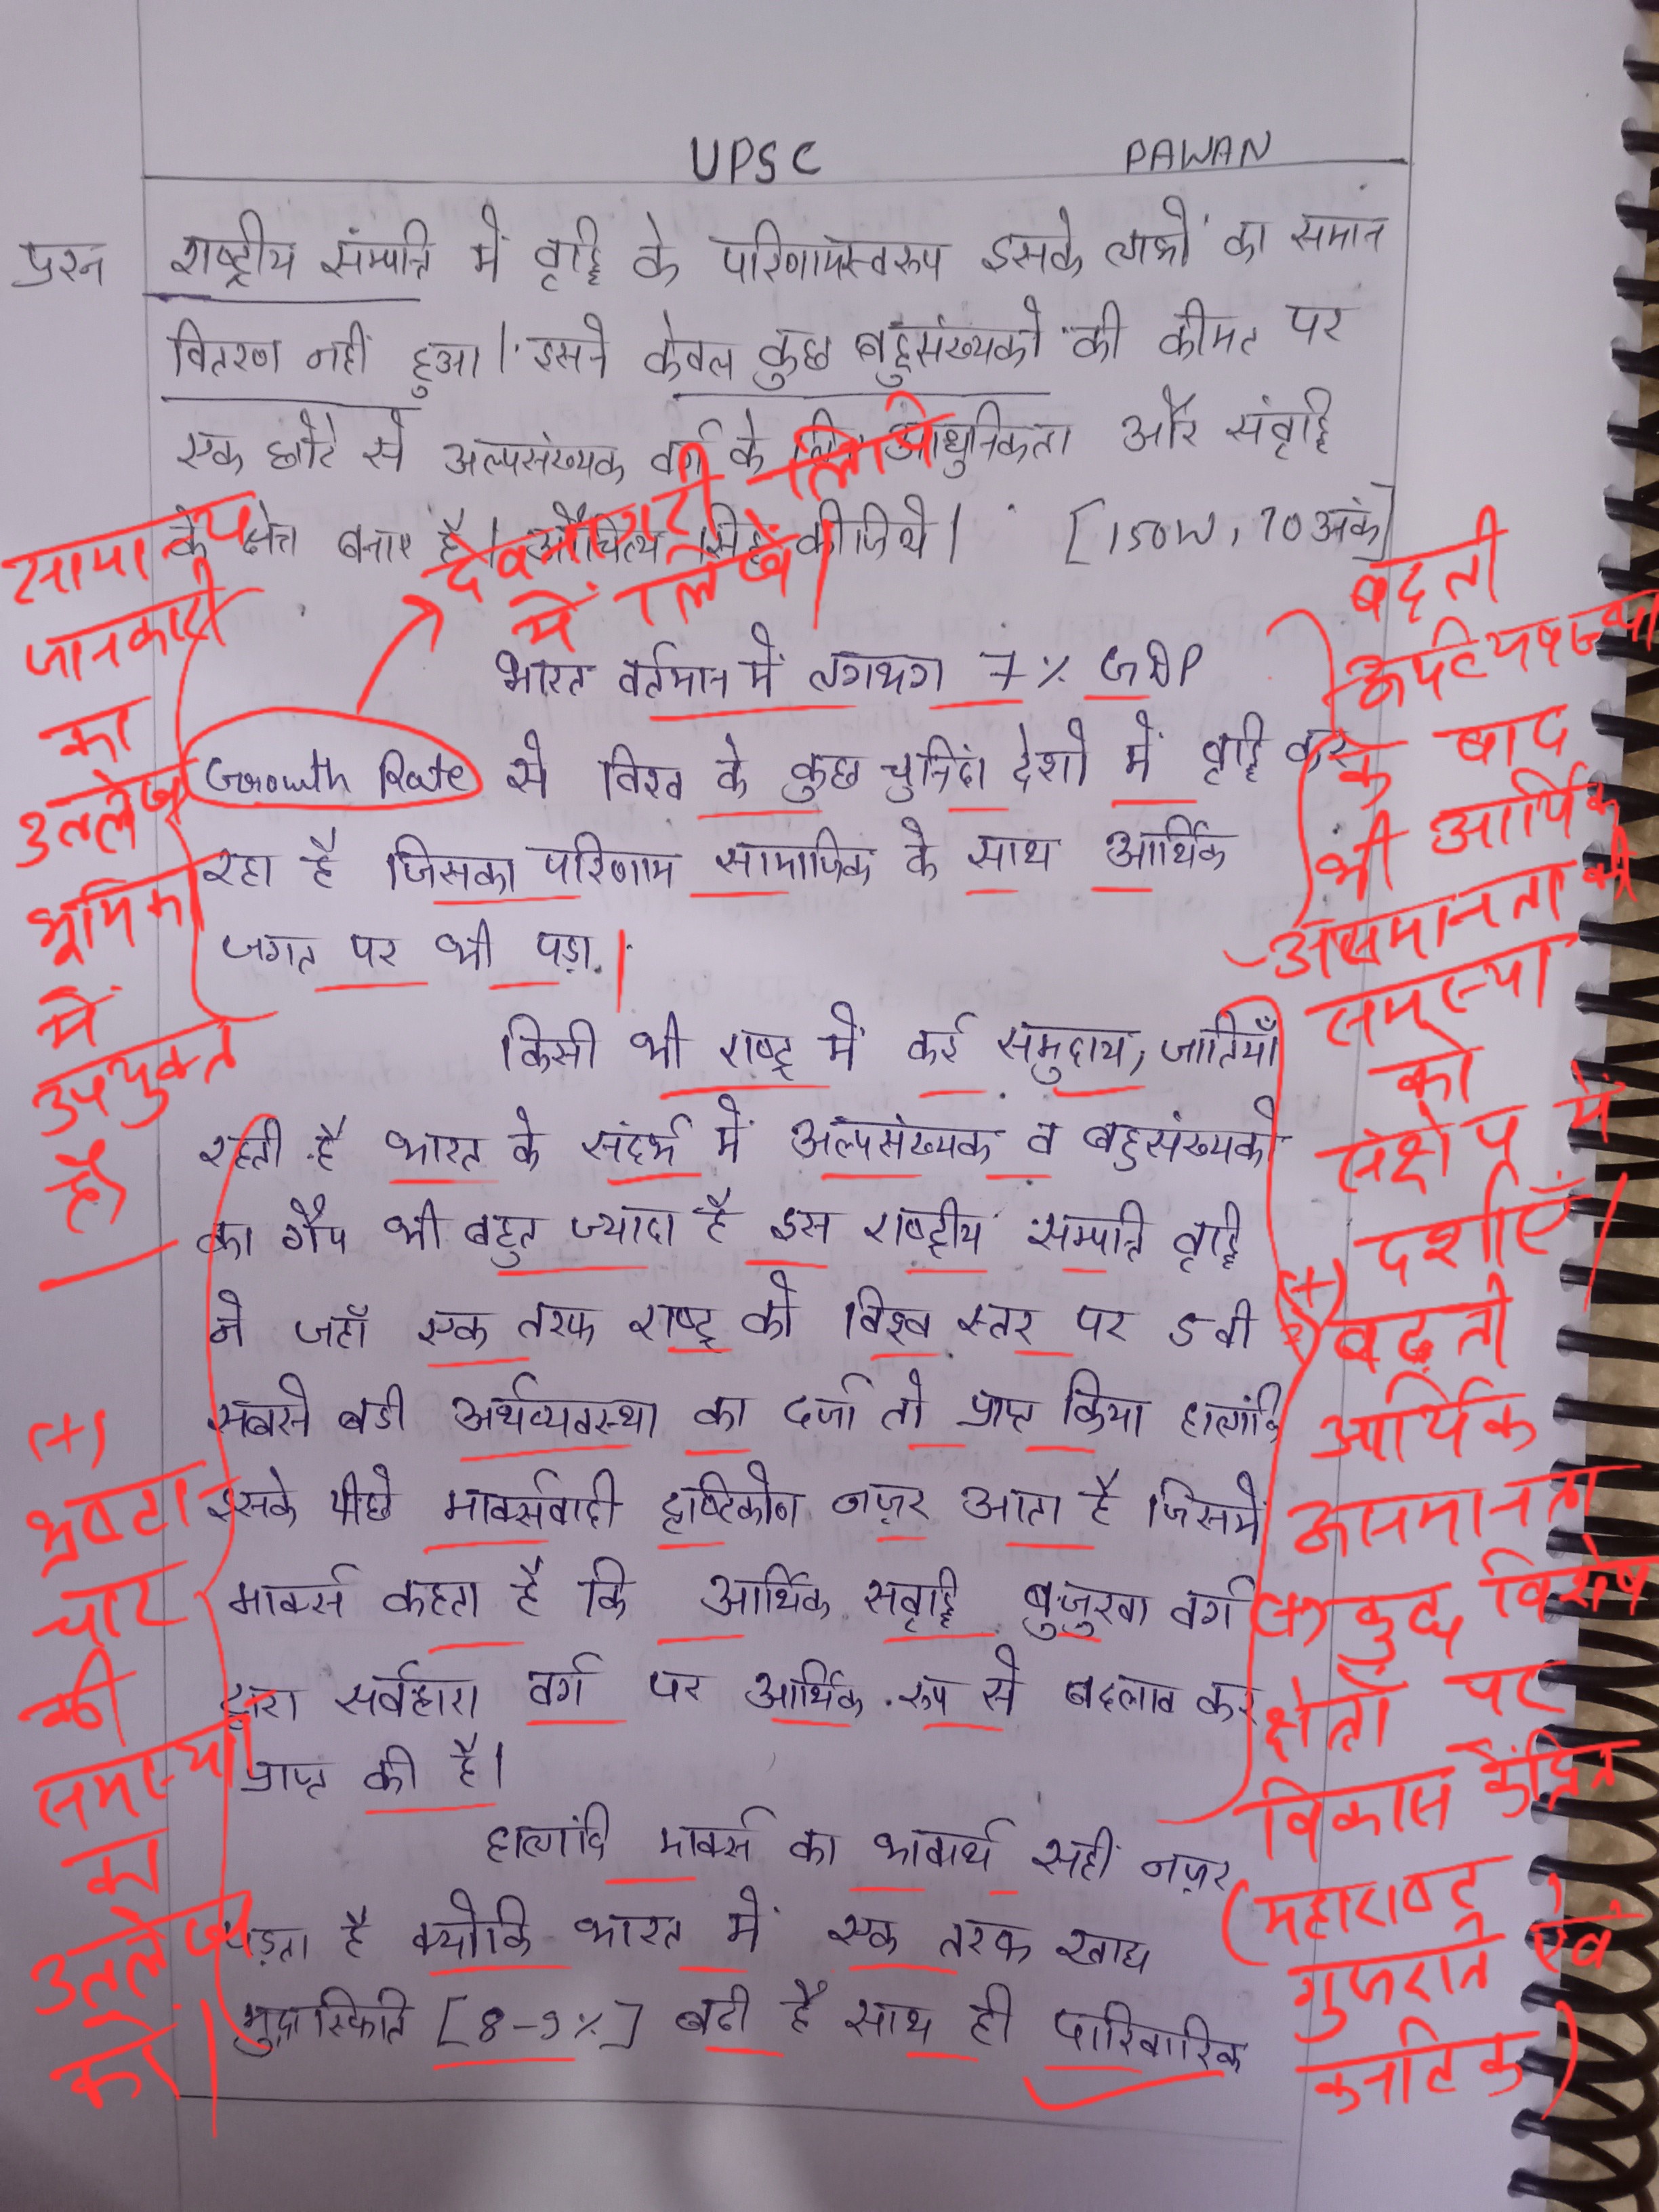 UPSC PAWAN
प्रश्न राष्ट्रीय संम्पत्ति में वृद्धि के परिणामस्वरूप इसके लाभों का समान
वितरण नहीं हुआ। इसने केवल कुछ बहुसंख्यको की कीमत पर
एक छोटे से अल्पसंख्यक वर्ग के लिए आधुनिकता और संवृद्धि
के क्षेत्र बनाए है। औचित्य सिद्ध कीजिये। [150W, 10 अंक]
देवनागरी लिपि
में लिखें।
भारत वर्तमान में लगभग 7% GDP
Growth Rate से विश्व के कुछ चुनिंदा देशो में वृद्धि कर
रहा है जिसका परिणाम सामाजिक के साथ आर्थिक
जगत पर भी पड़ा।
किसी भी राष्ट्र में कई समुदाय, जातियाँ
रहती है भारत के संदर्भ में अल्पसंख्यक व बहुसंख्यको
का गैप भी बहुत ज्यादा है इस राष्ट्रीय सम्पत्ति वृद्धि
ने जहाँ एक तरफ राष्ट्र को विश्व स्तर पर 5वी
सबसे बडी अर्थव्यवस्था का दर्जा तो प्राप्त किया हालांकि
इसके पीछे मार्क्सवादी दृष्टिकोण नज़र आता है जिसमें
मार्क्स कहता है कि आर्थिक सवृद्धि बुजुरवा वर्ग
द्वारा सर्वहारा वर्ग पर आर्थिक रूप से बदलाव कर
प्राप्त की है।
हालांकि मार्क्स का भावार्थ सही नज़र
पड़ता है क्योकि भारत में एक तरफ खाद्य
मुद्रास्फिति [8-9%] बढी है साथ ही पारिवारिक
सामान्य
जानकारी
का
उल्लेख
भूमिका
में
उपयुक्त
है।
(+)
भ्रष्टा-
चार
की
समस्या
का
उल्लेख
करें।
बढ़ती
अर्थव्यवस्था
के बाद
भी आर्थिक
असमानता की
समस्या
को
संक्षेप में
दर्शाएँ।
(+)
बढ़ती
आर्थिक
असमानता
(+) कुछ विशेष
क्षेत्रों पर
विकास केंद्रित
(महाराष्ट्र,
गुजरात एवं
कर्नाटक)